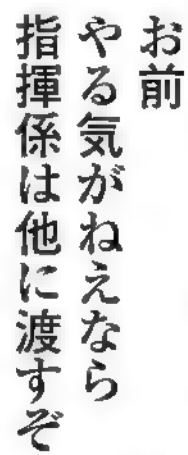 お前
やる気がねえなら
指揮係は他に渡すぞ